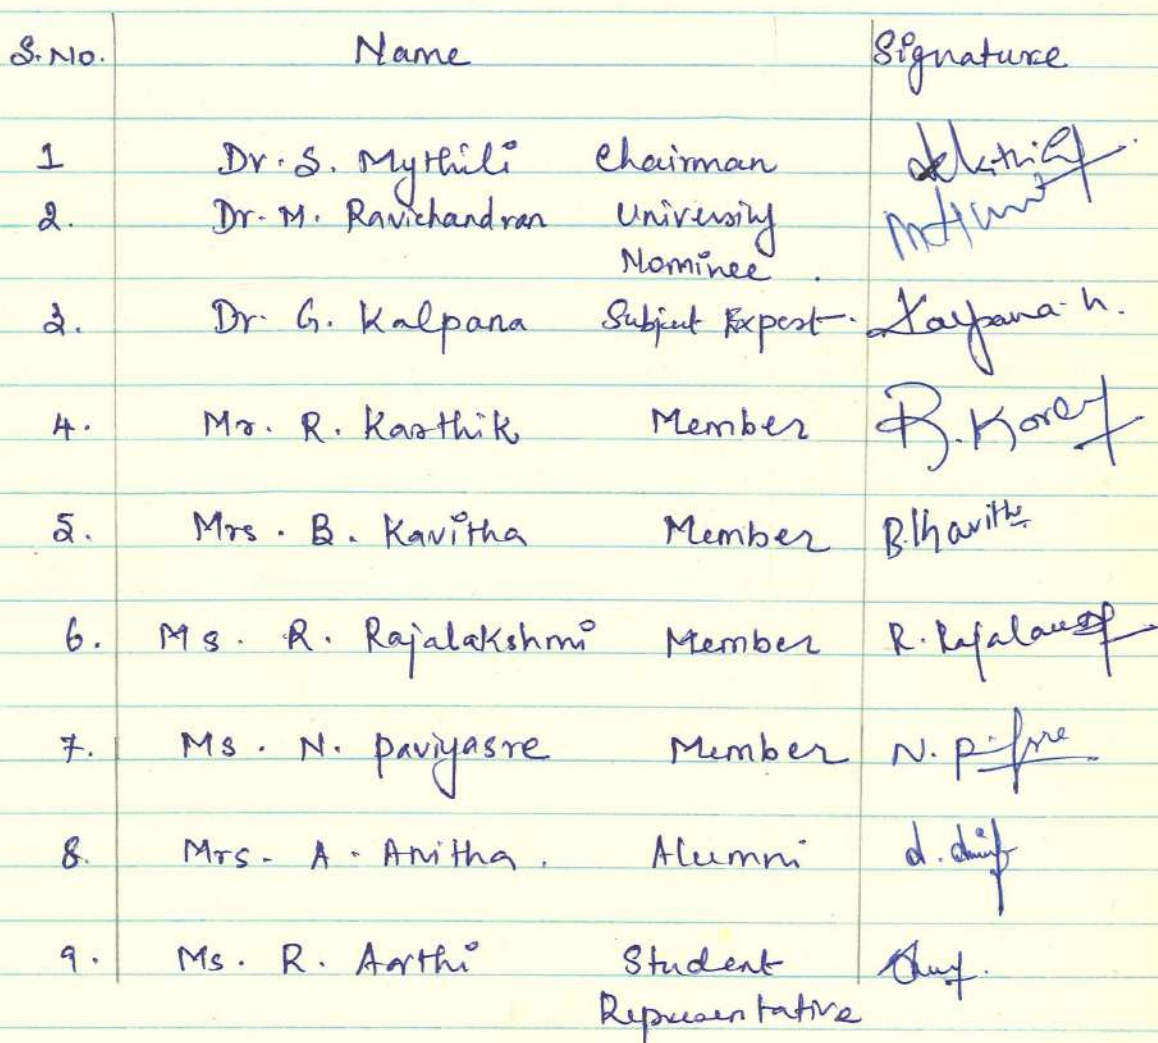 S.No. Name Signature
1 Dr. S. Mythili Chairman
2. Dr. M. Ravichandran University
Nominee.
3. Dr. G. Kalpana Subject Expert. Kalpana. h.
4. Mr. R. Karthik Member R.
5. Mrs. B. Kavitha Member B. Kavitha
6. Ms. R. Rajalakshmi Member R.
7. Ms. N. paviyasre Member N.
8. Mrs. A. Anitha. Alumni
9. Ms. R. Aarthi Student
Representative